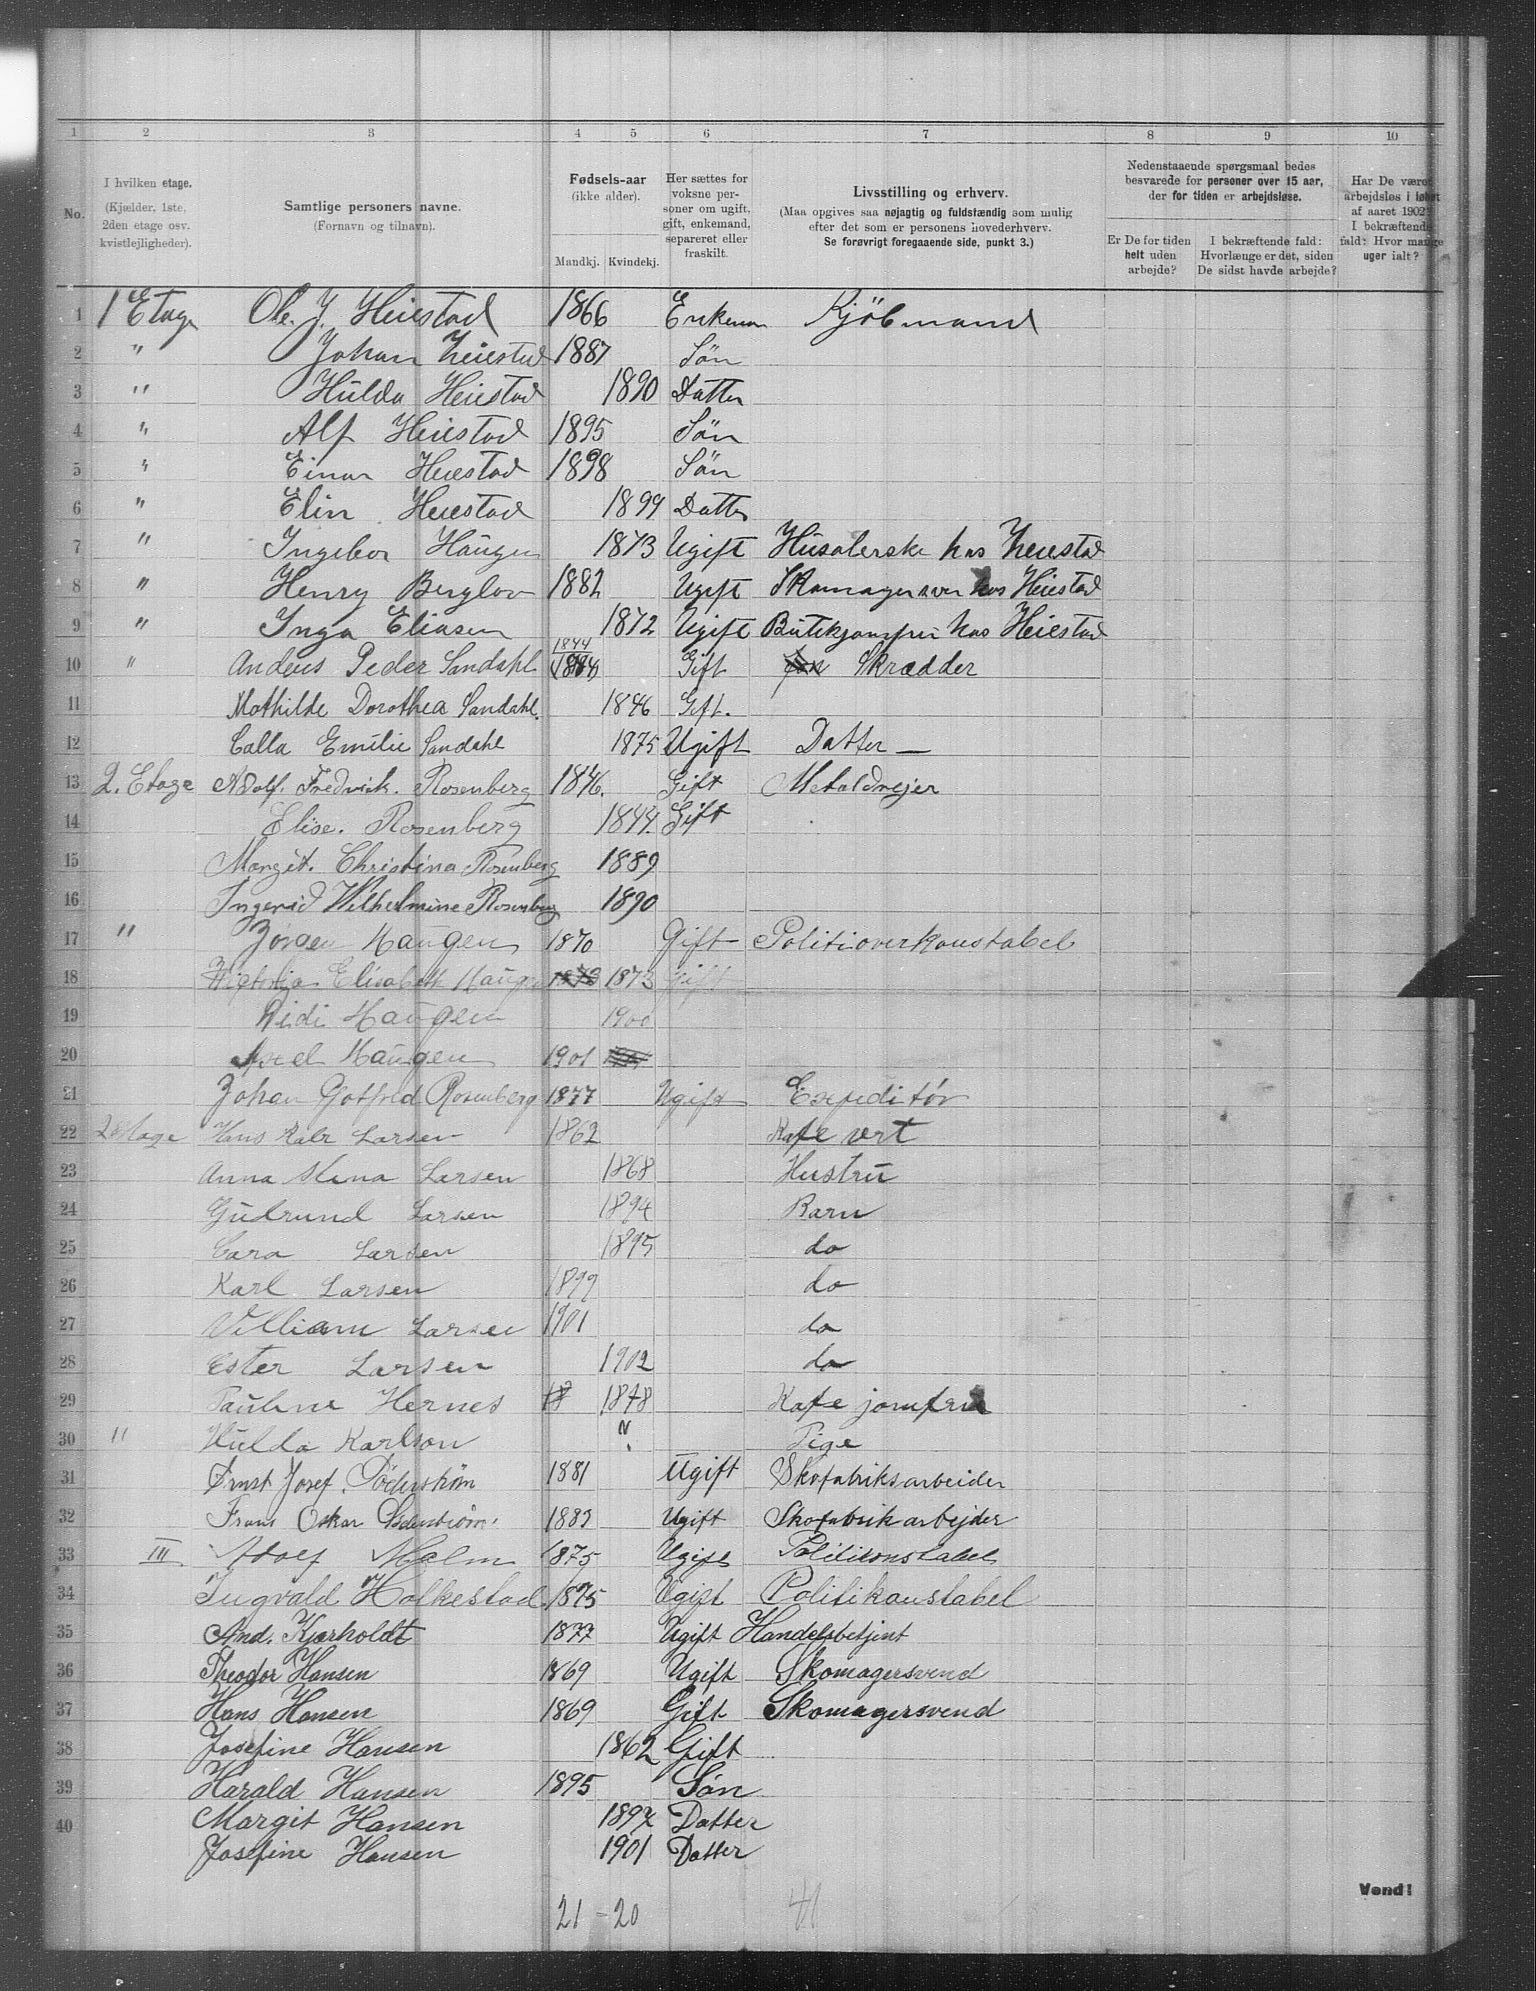 1 2 3 4 5 6 7 8 9 10
No. I hvilken etage. (Kjælder, 1ste, 2den etage osv. kvistlejligheder). Samtlige personers navne. (Fornavn og tilnavn). Fødsels-aar (ikke alder). Mandkj. Kvindekj. Her sættes for voksne personer om ugift, gift, enkemand, separeret eller fraskilt. Livsstilling og erhverv. (Maa opgives saa nøjagtig og fuldstændig som mulig efter det som er personens hovederhverv. Se forøvrigt foregaaende side, punkt 3.) Nedenstaaende spørgsmaal bedes besvarede for personer over 15 aar, der for tiden er arbejdsløse. Er De for tiden helt uden arbejde? I bekræftende fald: Hvorlænge er det, siden De sidst havde arbejde? Har De været arbejdsløs i løbet af aaret 1902? I bekræftende fald: Hvor mange uger ialt?
1 1 Etage Ole. J. Heiestad 1866 Enkeman Kjöbmand
2 " Johan Heiestad 1887 Sön
3 " Hulda Heiestad 1890 Datter
4 " Alf Heiestad 1895 Sön
5 " Einar Heiestad 1898 Sön
6 " Elin Heiestad 1899 Datter
7 " Ingebor Haugen 1873 Ugift Husolerske hos Heiestad
8 " Henry Berglov 1882 Ugift Skomagersven hos Heiestad
9 " Inga Eliasen 1872 Ugift Butikjomfru hos Heiestad
10 " Anders Peder Sandahl 1844 Gift Skrædder
11 Mathilde Dorothea Sandahl. 1846 Gift.
12 Calla Emilie Sandahl 1875 Ugift Datter
13 2. Etage Adolf. Fredrick. Rosenberg 1846. Gift Metaldrejer
14 Elise. Rosenberg 1844. Gift
15 Margit. Christina Rosenberg 1889
16 Ingerid Wilhelmine Rosenberg 1890
17 " Jörgen Haugen 1870 Gift Politioverkonstabel
18 Elisabeth Haugen 1873 Gift
19 Didi Haugen 1900
20 Axel Haugen 1901
21 Johan Gotfold Rosenberg 1877 Ugift Expeditör
22 2 Etage Hans Larsen 1862 Kafe vert
23 Anna Larsen 1868 Hustru
24 Gudrund Larsen 1894 Barn
25 Cara Larsen 1895 do
26 Karl Larsen 1899 do
27 Villiam Larsen 1901 do
28 Ester Larsen 1902 do
29 Pauline Hernes 1878 Kafe jomfru
30 " Hulda Karlson " Pige
31 Ernst Josef. Söderström 1881 Ugift Skofabriksarbeider
32 Frans Oskar Söderström. 1883 Ugift Skofabrikarbejder
33 III Adolf Malm 1875 Ugift Politikonstabel
34 Ingvald Holkestad. 1875 Ugift Politikonstabel
35 And. Kjærholdt 1877 Ugift Handelsbetjent
36 Theodor Hansen 1869 Ugift Skomagersvend
37 Hans Hansen 1869 Gift Skomagersvend
38 Josefine Hansen 1862 Gift
39 Harald Hansen 1895 Sön
40 Margit Hansen 1897 Datter
Josefine Hansen 1901 Datter
Vend!
21 - 20 41